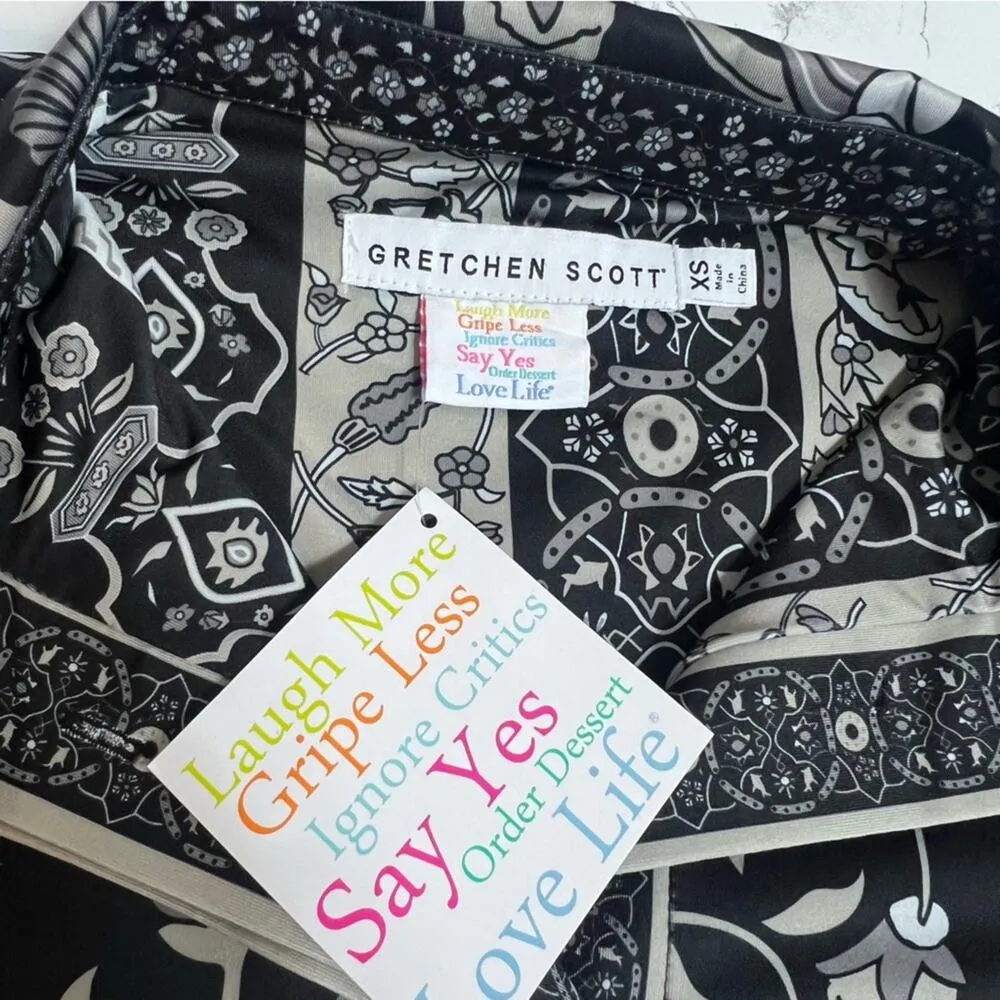 GRETCHEN SCOTT
XS
Made
in
China
Laugh More
Gripe Less
Ignore Critics
Say Yes
Order Dessert
Love Life®
Laugh More
Gripe Less
Ignore Critics
Say Yes
Order Dessert
Love Life®